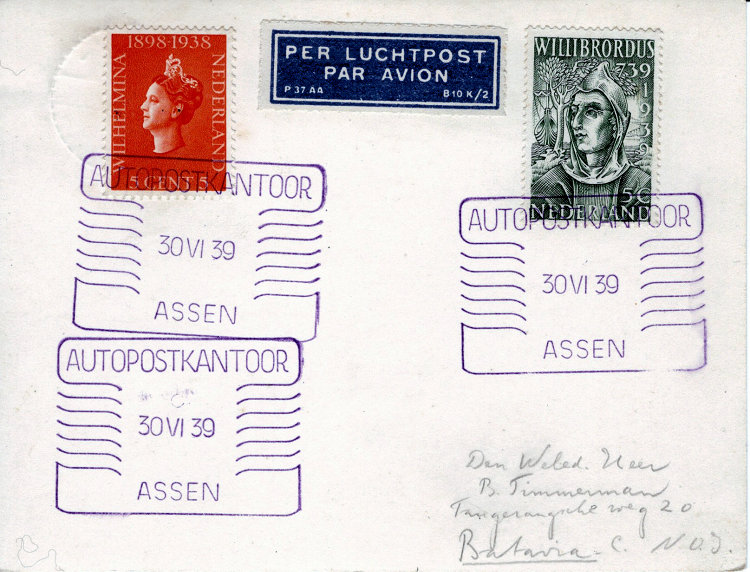 1898-1938
WILHELMINA
NEDERLAND
5 CENT 5
PER LUCHTPOST
PAR AVION
P 37 AA B10 K/2
WILLIBRORDUS
739
1939
5C
NEDERLAND
AUTOPOSTKANTOOR
30 VI 39
ASSEN
AUTOPOSTKANTOOR
30 VI 39
ASSEN
AUTOPOSTKANTOOR
30 VI 39
ASSEN
Den Weled. Heer
B. Timmerman
Tangerangsche weg 20
Batavia-C. N.O.I.